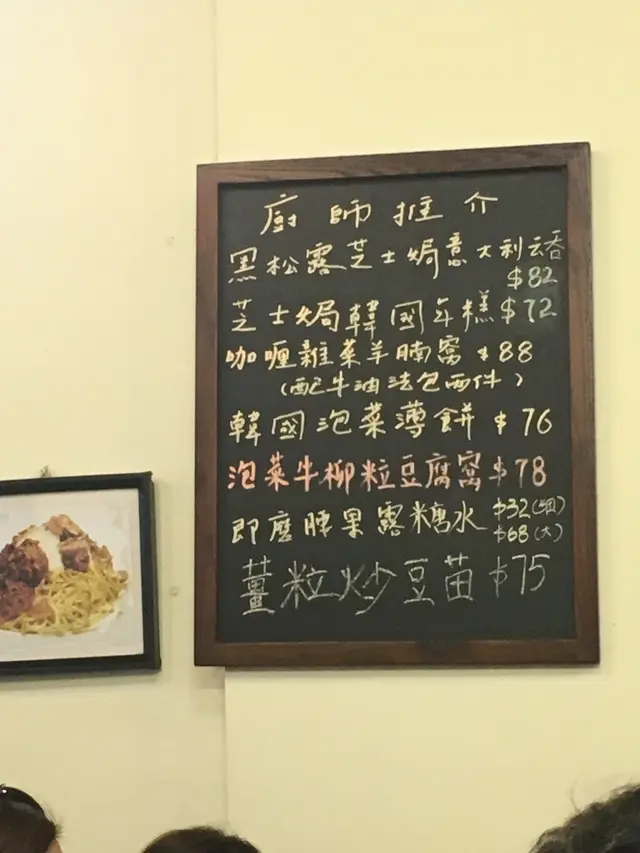 廚師推介
黑松露芝士焗意大利云吞
$82
芝士焗韓國年糕$72
咖喱雜菜羊腩窩$88
(配牛油法包兩件)
韓國泡菜薄餅$76
泡菜牛柳粒豆腐窩$78
即磨腰果露糖水 $32(細)
$68(大)
薑粒炒豆苗$75